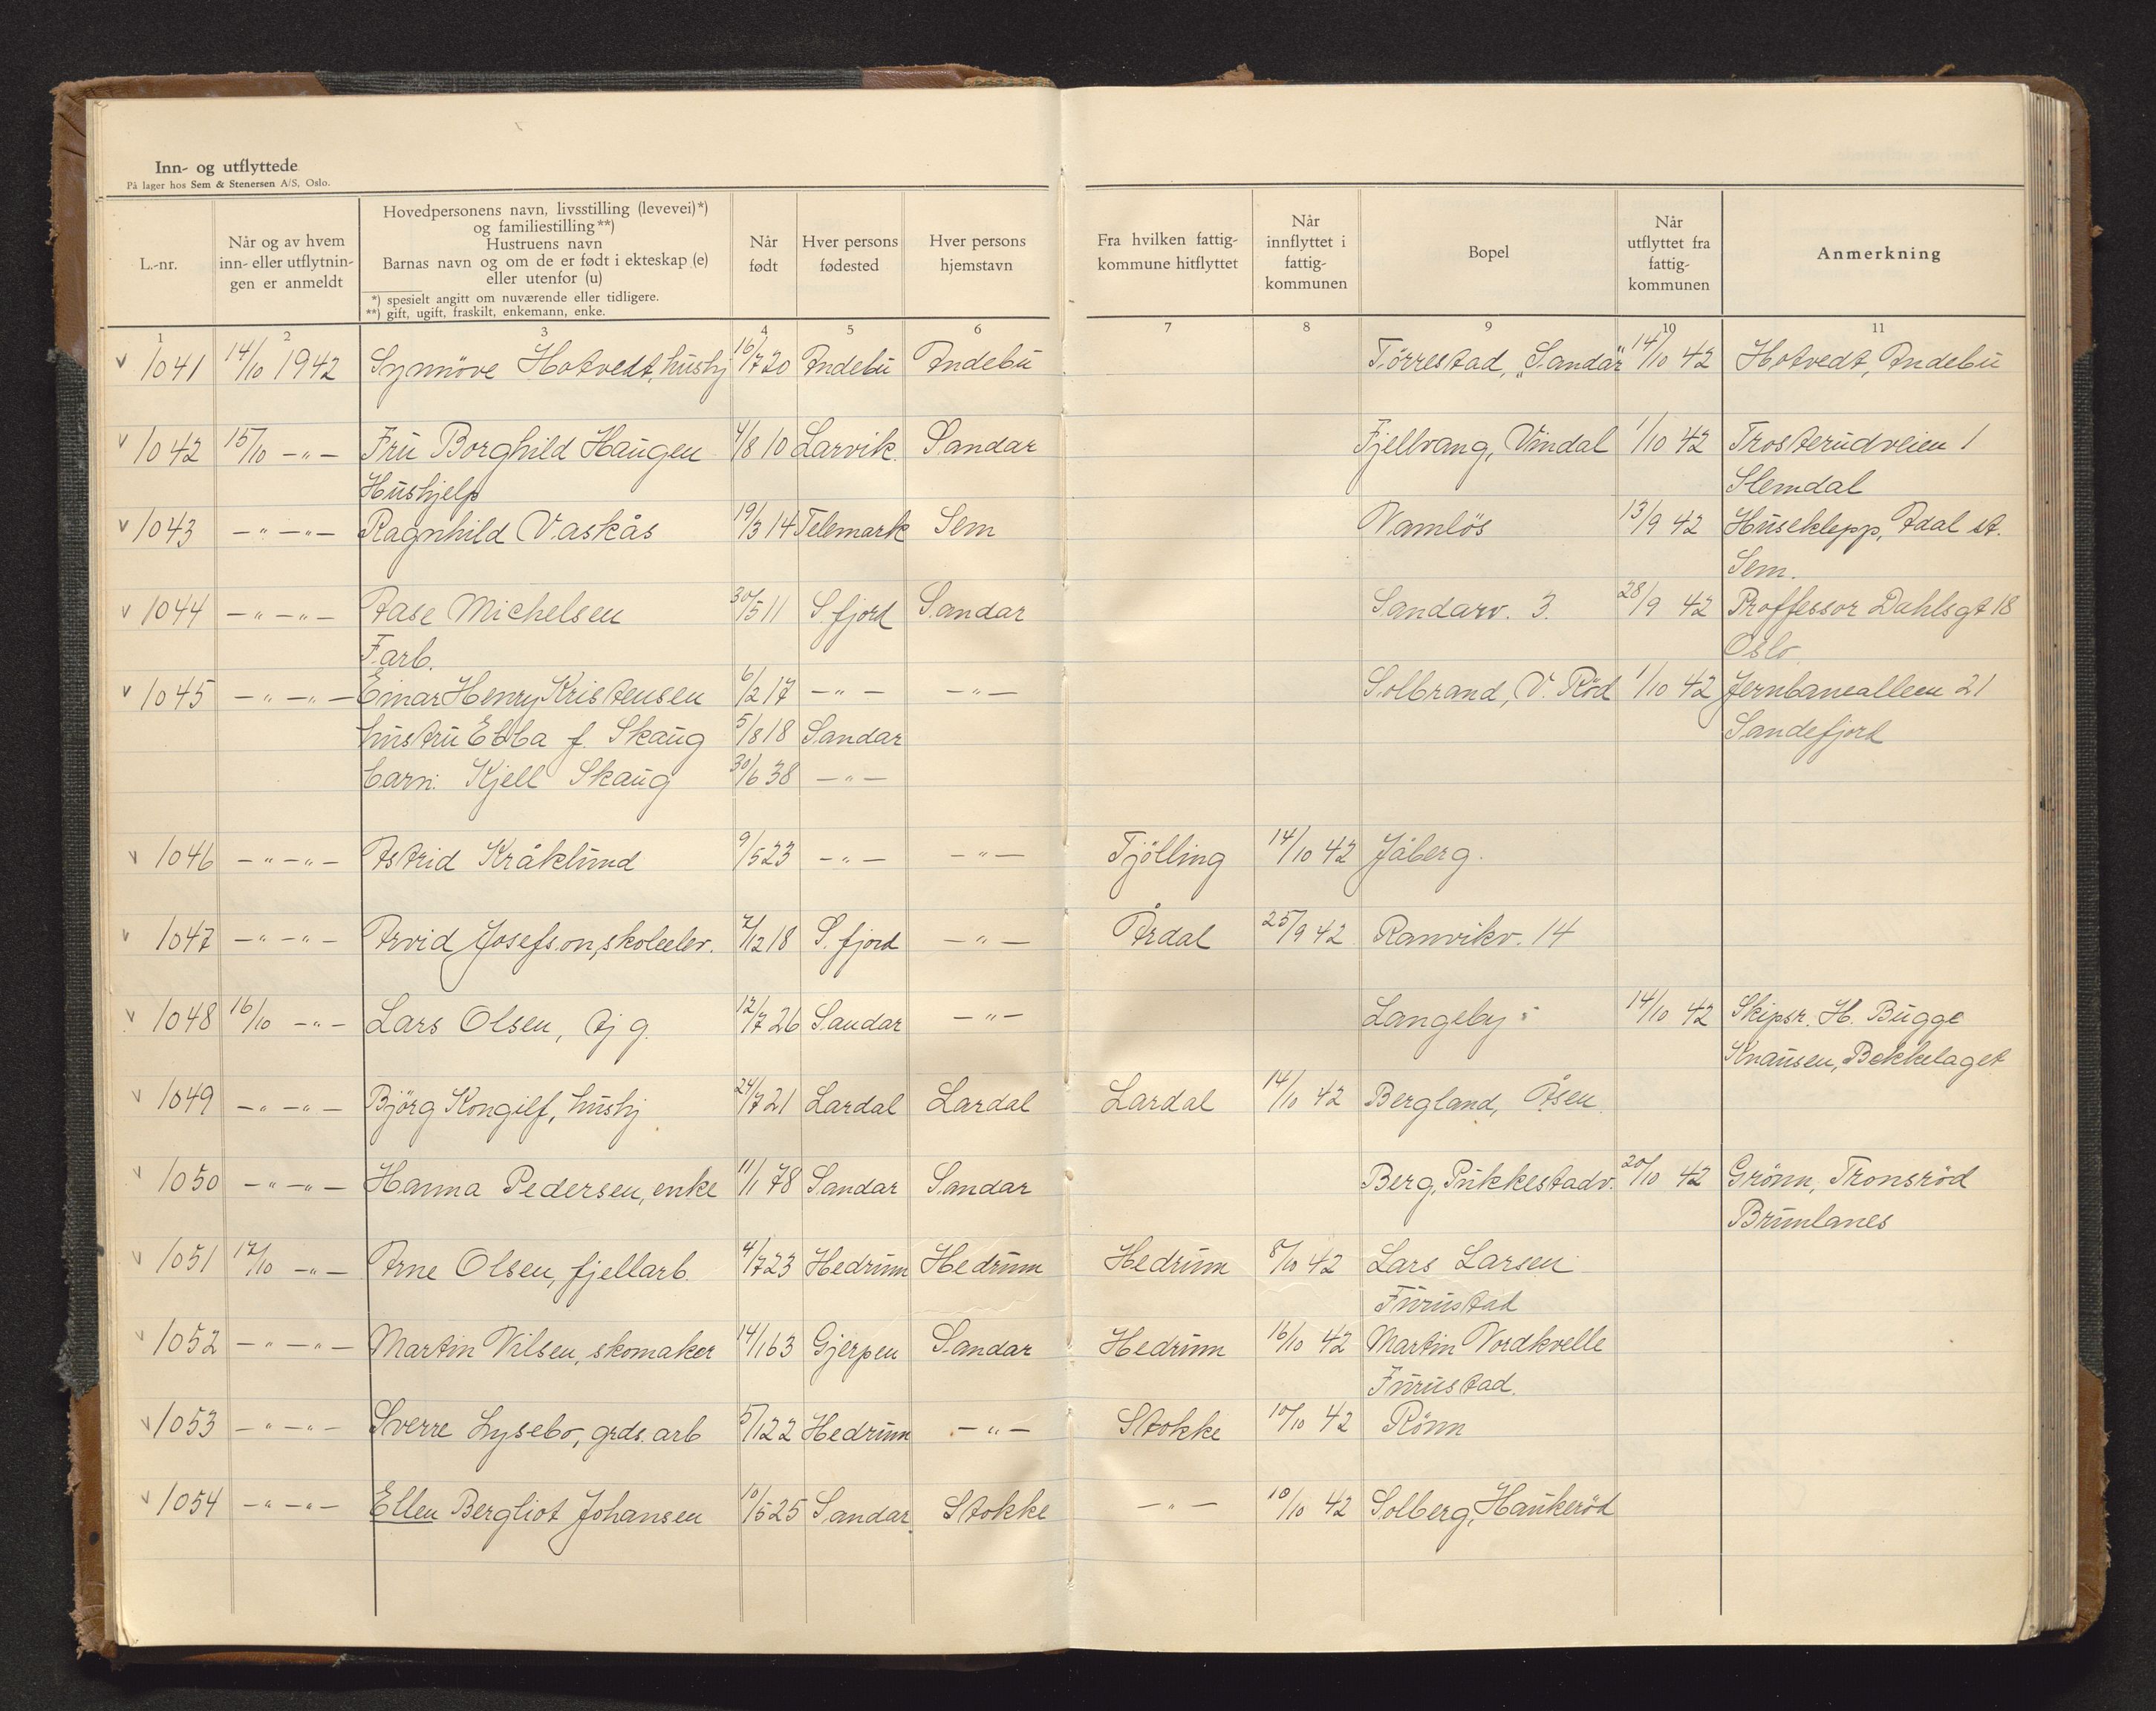 Inn- og utflyttede
På lager hos Sem & Stenersen A/S, Oslo.
L.-nr.
Når og av hvem inn- eller utflytnin- gen er anmeldt
Hovedpersonens navn, livsstilling (levevei)*)
og familiestilling**)
Hustruens navn
Barnas navn og om de er født i ekteskap (e)
eller utenfor (u)
*) spesielt angitt om nuværende eller tidligere.
**) gift, ugift, fraskilt, enkemann, enke.
Når født
Hver persons fødested
Hver persons hjemstavn
Fra hvilken fattig- kommune hitflyttet
Når innflyttet i fattig- kommunen
Bopel
Når utflyttet fra fattig- kommunen
Anmerkning
1 2 3 4 5 6 7 8 9 10 11
v 1041 14/10 1942 Synnöve Hotvedt, hushj 16/7 20 Andebu Andebu Törrestad, "Sandar" 14/10 42 Hotvedt, Andebu
v 1042 15/10 -"- Fru Borghild Haugen 4/8 10 Larvik Sandar Fjellvang, Vindal 1/10 42 Trosterudveien 1
Hushjelp Slemdal
v 1043 -"- -"- Ragnhild Vaskås 19/3 14 Telemark Sem Namlös 13/9 42 Huseklepp, Adal st.
Sem.
v 1044 -"- -"- Aase Michelsen 30/5 11 S.fjord Sandar Sandarv. 3. 28/9 42 Proffessor Dahlsgt 18
F.arb. Oslo
v 1045 -"- -"- Einar Henry Kristensen 6/2 17 -"- -"- Solbrand, V. Röd 1/10 42 Jernbanealleen 21
hustru Ebba f. Skaug 5/8 18 Sandar Sandefjord
barn: Kjell Skaug 30/6 38 -"-
v 1046 -"- -"- Astrid Kråklund 9/5 23 -"- -"- Tjölling 14/10 42 Jåberg.
v 1047 -"- -"- Arvid Josefson, skoleelev. 7/12 18 S.fjord -"- Årdal 25/9 42 Ranvikv. 14
v 1048 16/10 -"- Lars Olsen, tj g. 12/7 26 Sandar -"- Langeby 14/10 42 Skipsr. H. Bugge
Knausen, Bekkelaget
v 1049 -"- -"- Björg Kongilf, hushj 24/7 21 Lardal Lardal Lardal 14/10 42 Bergland, Åsen
v 1050 -"- -"- Hanna Pedersen, enke 11/1 78 Sandar Sandar Berg, Pukkestadv. 20/10 42 Grönn, Tronsröd
Brunlanes
v 1051 17/10 -"- Arne Olsen, fjellarb. 4/7 23 Hedrum Hedrum Hedrum 8/10 42 Lars Larsen
Furustad
v 1052 -"- -"- Martin Nilsen, skomaker 14/1 63 Gjerpen Sandar Hedrum 16/10 42 Martin Nordkvelle
Furustad.
v 1053 -"- -"- Sverre Lysebo, grds. arb 5/1 22 Hedrum -"- Stokke 10/10 42 Rönn
v 1054 -"- -"- Ellen Bergliot Johansen 10/5 25 Sandar Stokke -"- 10/10 42 Solberg, Haukeröd